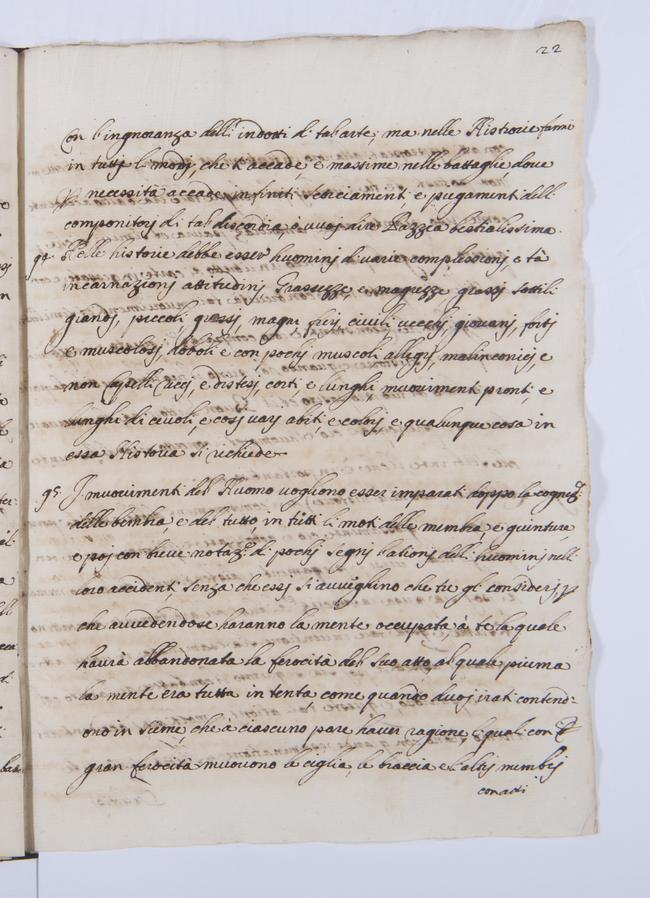 22
Con l'ingnoranza delli indotti di tal arte, ma nelle Historie fanne
in tutti li modi, che ti accade, e massime nelle battaglie, dove
p necessità accade infiniti scorciamenti e piegamenti delli
componitori di tal discordia, o vuoi dire Pazzia bestialissima.
94 Nelle historie debbe esser huomini di varie complessioni, età
incarnazioni attitudini Grassezze, e magrezze grassi sottili
grandi, piccoli grossi, magri fieri civili vecchi giovani, forti
e muscolosi deboli e con pochi muscoli allegri, malinconici, e
con Capelli ricci, e distesi, corti e lunghi, muovimenti pronti, e
lunghi di civoli, e così varj abiti, e colori, e qualunque cosa in
essa Historia si richiede
95 I muovimenti del Huomo vogliono esser imparati doppo la cogniz.e
delle bembra e del tutto, in tutti li moti delle membra e giunture
e poi con breve notaz.e di pochi segni l'ationi delli huomini nelli
loro accidenti senza che essi si avveghino che tu gli consideri, p
che avvedendose haranno la mente occupata, à te la quale
haurà abbandonata la ferocità del suo atto, al quale prima
la mente era tutta intenta, come quando duoi irati contend=
ono insieme, che à ciascuno pare haver ragione, li quali con
gran ferocità muovono le ciglia, le braccia e l'altri membri
con atti